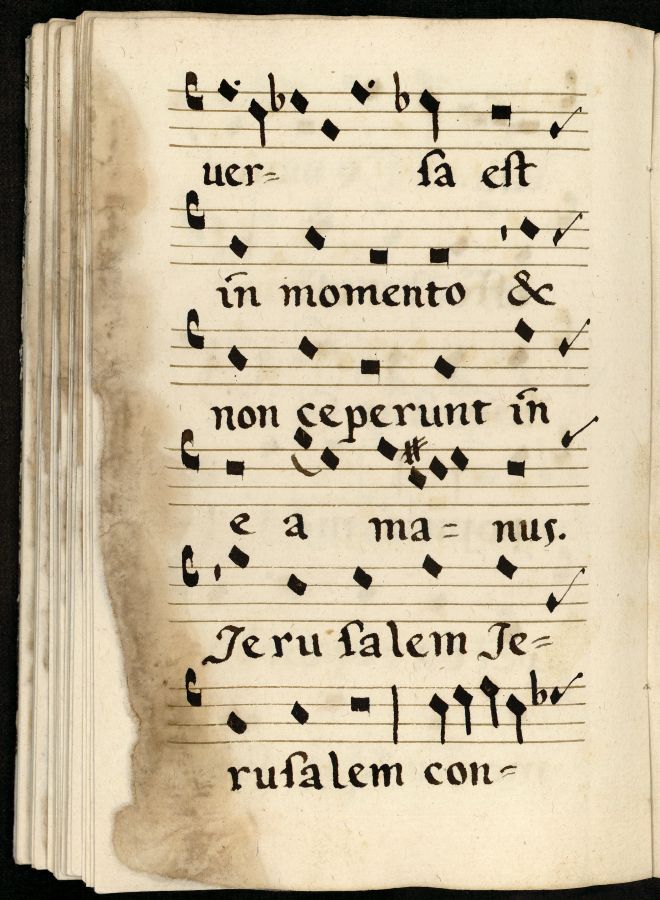 uer= ſa eſt
in momento &
non ceperunt in
e a ma= nus.
Jeru ſalem Je=
ruſalem con=